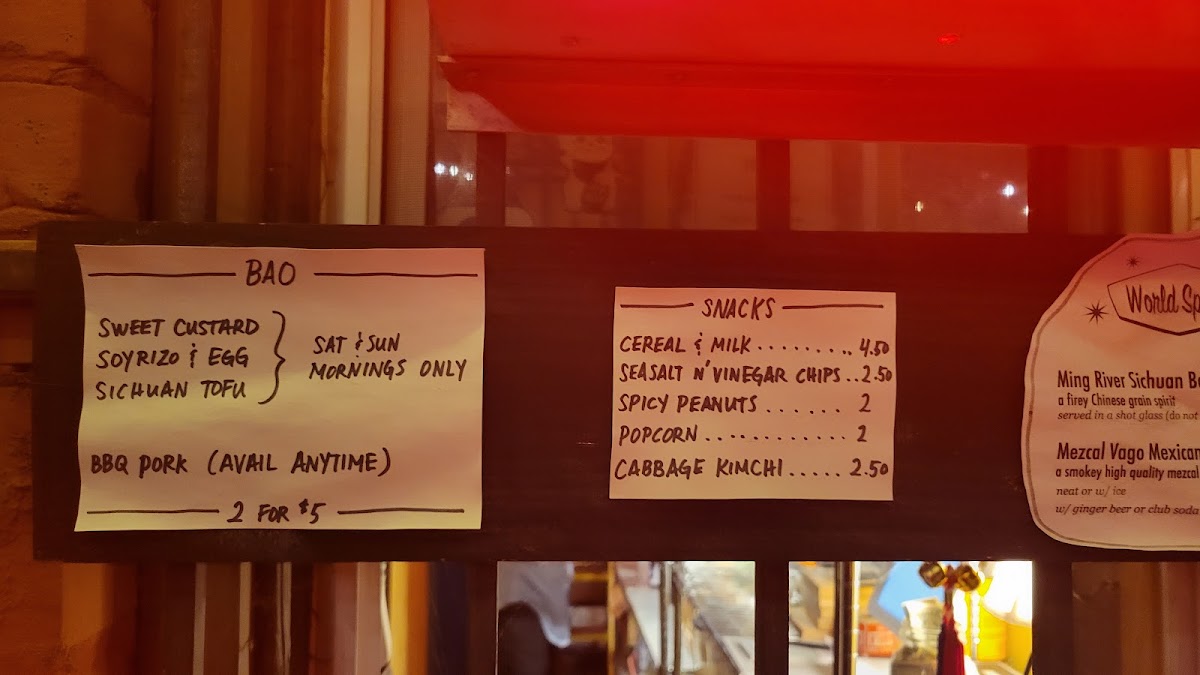 BAO
SWEET CUSTARD
SOYRIZO & EGG
SICHUAN TOFU
SAT & SUN
MORNINGS ONLY
BBQ PORK (AVAIL ANYTIME)
2 FOR $5
SNACKS
CEREAL & MILK......... 4.50
SEASALT N' VINEGAR CHIPS..2.50
SPICY PEANUTS...... 2
POPCORN............ 2
CABBAGE KIMCHI..... 2.50
World
Ming River Sichuan
a firey Chinese grain spirit
served in a shot glass (do not
Mezcal Vago Mexican
a smokey high quality mezcal
neat or w/ ice
w/ ginger beer or club soda